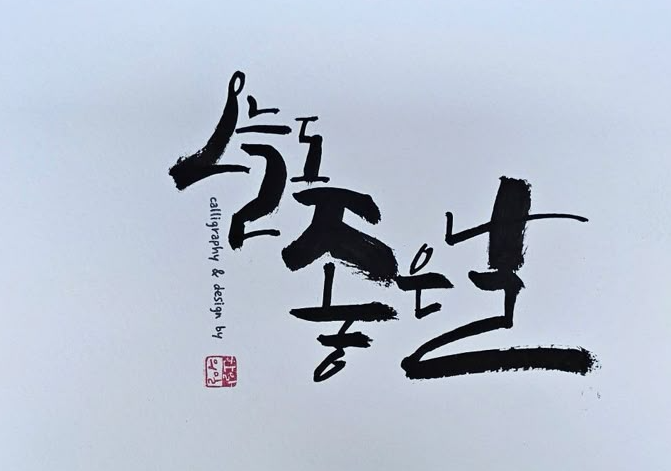 오늘도
좋은
날
calligraphy & design by